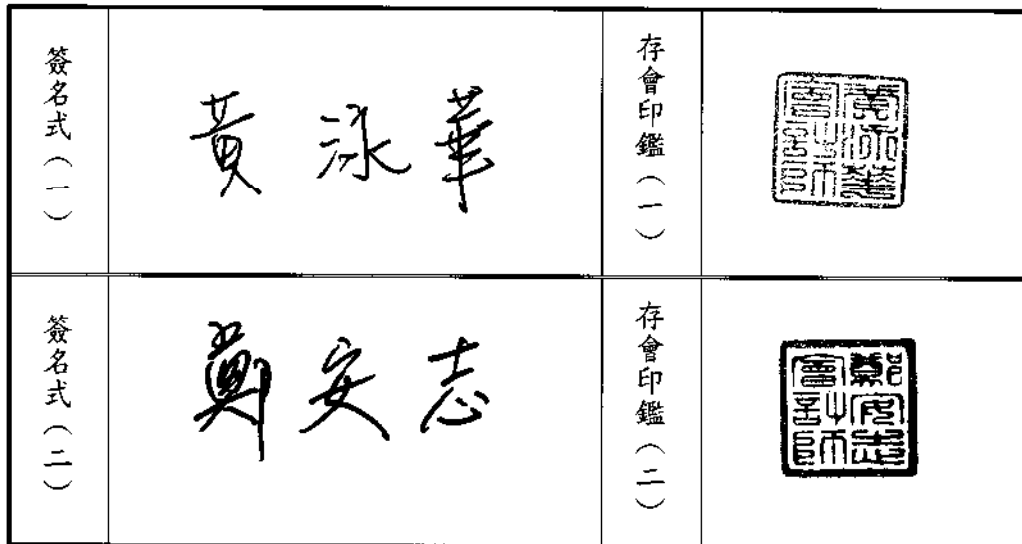 簽名式（一）
黃泳華
存會印鑑（一）
黃泳華會計師
簽名式（二）
鄭安志
存會印鑑（二）
鄭安志會計師